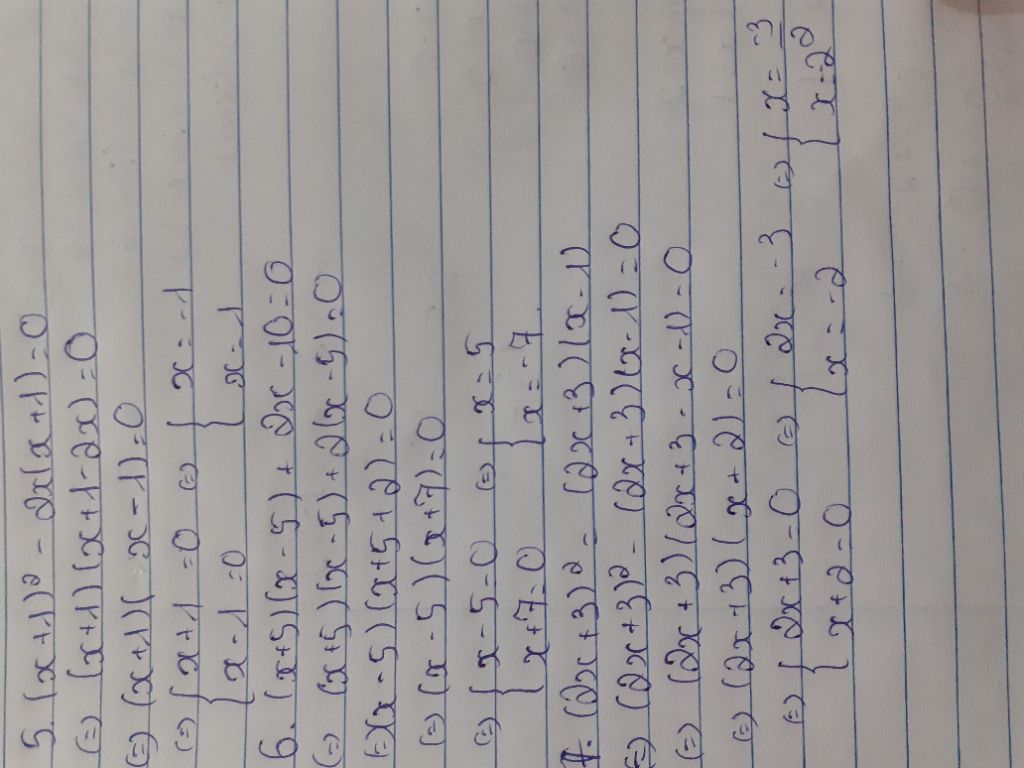 5. (x+1)² - 2x(x+1)=0
(=) (x+1)(x+1-2x)=0
(=) (x+1)(-x-1)=0
(=) { x+1=0 (=) { x=-1
{ x-1=0 { x=1
6. (x+5)(x-5)+2x-10=0
(=) (x+5)(x-5)+2(x-5)=0
(=)(x-5)(x+5+2)=0
(=) (x-5)(x+7)=0
(=) { x-5=0 (=) { x=5
{ x+7=0 { x=-7
7. (2x+3)² = (2x+3)(x-1)
(=) (2x+3)² - (2x+3)(x-1)=0
(=) (2x+3)(2x+3-x-1)=0
(=) (2x+3)(x+2)=0
(=) { 2x+3=0 (=) { 2x=-3 (=) { x=-3/2
{ x+2=0 { x=-2 { x=-2